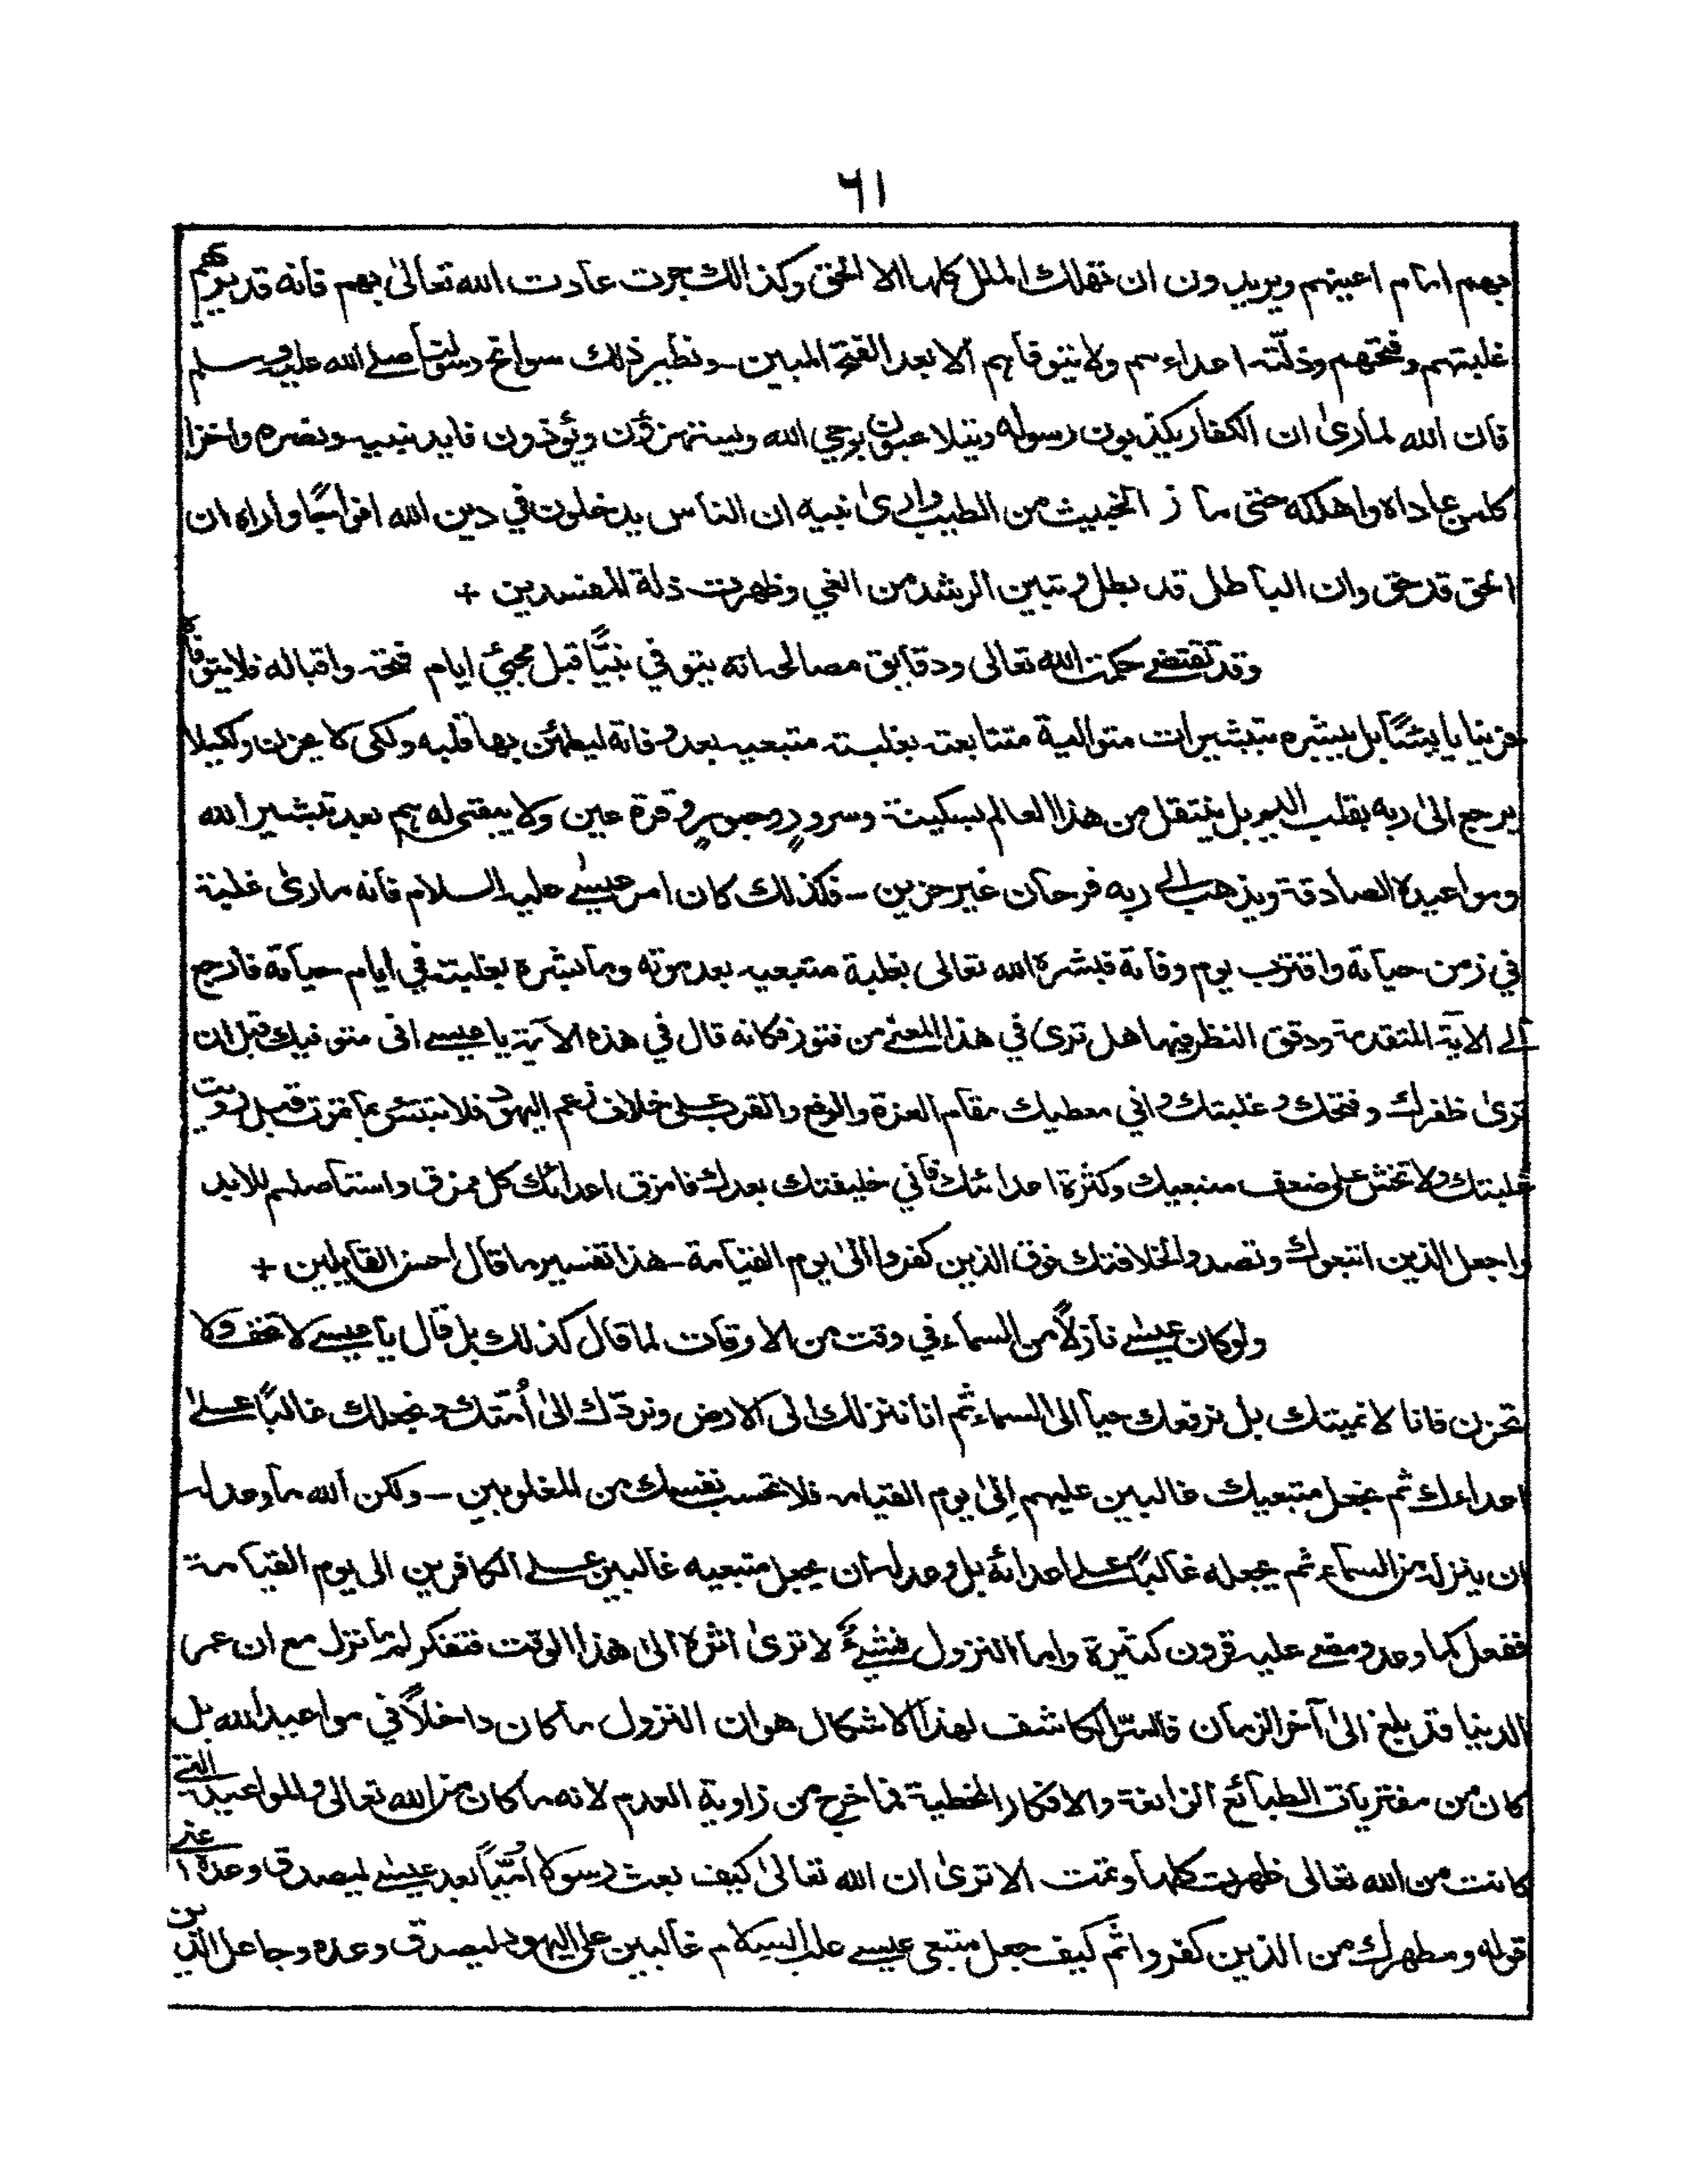 ٦١
بهم امام اعينهم ويريدون ان تهلك الملل كلها الا الحق وكذالك جرت عادت الله تعالىٰ بهم فانه قد يريهم
غلبتهم وفتحهم وذلّة اعداءهم ولا يتوفاهم الا بعد الفتح المبين ـ ونظير ذلك سوانح رسولنا صلے الله عليه وسلم
فان الله لما رىٰ ان الكفار يكذبون رسوله ويتلاعبون بوحي الله ويستهزؤن ويؤذون فايد نبيه ونصره واخزا
كل من عاداه واهلكه حتى ماز الخبيث من الطيب وارىٰ نبيه ان الناس يدخلون في دين الله افواجًا واراه ان
الحق قد حق وان الباطل قد بطل وتبين الرشد من الغي وظهرت ذلة المفسدين +
وقد تقتضے حكمت الله تعالى ودقايق مصالحه انه يتوفي نبيًّا قبل مجيئ ايام فتحه واقباله فلا يتوفاه
حزينا يايئسًا بل يبشره بتبشيرات متوالية متتابعة بغلبة متبعيه بعد وفاته ليطمئن بها قلبه ولكى لا يحزن ولكيلا
يرجع الىٰ ربه بقلب اليم بل ينتقل من هذا العالم بسكينة وسرورٍ وحبورٍ وقرة عين ولا يبقى له هم بعد تبشير الله
ومواعيده الصادقة ويذهب الى ربه فرحان غير حزين ـ فكذلك كان امر عيسٰے عليه السلام فانه ما رىٰ غلبة
في زمن حياته واقترب يوم وفاته فبشره الله تعالى بغلبة متبعيه بعد موته وما بشره بغلبته في ايام حياته فارجع
الے الآية المتقدمة ودقق النظر فيها هل ترى في هذا المعنے من فتور فكانه قال في هذه الآية يا عيسے انى متوفيك قبل ان
ترىٰ ظفرك وفتحك وغلبتك واني معطيك مقام العزة والرفع والقرب علے خلاف زعم اليهود فلا تبتئس بما تموت قبل رويت
غلبتك ولا تخش على ضعف متبعيك وكثرة اعدائك فاني خليفتك بعدك فامزق اعدائك كل ممزق واستاصلهم للابد
واجعل الذين اتبعوك وتصدوا لخلافتك فوق الذين كفروا الىٰ يوم القيامة ـ هذا تفسير ما قال احسن القايلين +
ولو كان عيسٰے نازلًا من السماء في وقت من الاوقات لما قال كذلك بل قال يا عيسے لا تخف ولا
تحزن فانا لا نميتك بل نرفعك حيا الى السماء ثم انا ننزلك الى الارض ونردّك الىٰ اُمّتك ونجعلك غالبًا علےٰ
اعداءك ثم نجعل متبعيك غالبين عليهم اِلىٰ يوم القيامه فلا تحسب نفسك من المغلوبين ـ ولكن الله ما وعد له
ان ينزله من السماء ثم يجعله غالبًا علے اعدائه بل وعد له ان يجعل متبعيه غالبين علے الكافرين الى يوم القيامة
ففعل كما وعد ومضے عليه قرون كثيرة واما النزول فشيءٌ لا ترىٰ اثره الىٰ هذا الوقت فتفكر لم ما نزل مع ان عمر
الدنيا قد بلغ الىٰ آخر الزمان فالسرّ الكاشف لهذا الاشكال هو ان النزول ما كان داخلًا في مواعيد الله بل
كان من مفتريات الطبائع الزائغة والافكار المخطية فما خرج من زاوية العدم لانه ما كان من الله تعالى والمواعيد التے
كانت من الله تعالى ظهرت كلها وتمت الا ترىٰ ان الله تعالىٰ كيف بعث رسولا اُمّيًّا بعد عيسٰے ليصدق وعده اعنے
قوله ومطهرك من الذين كفروا ثم كيف جعل متبعى عيسے عليه السلام غالبين على اليهود ليصدق وعده وجاعل الذين